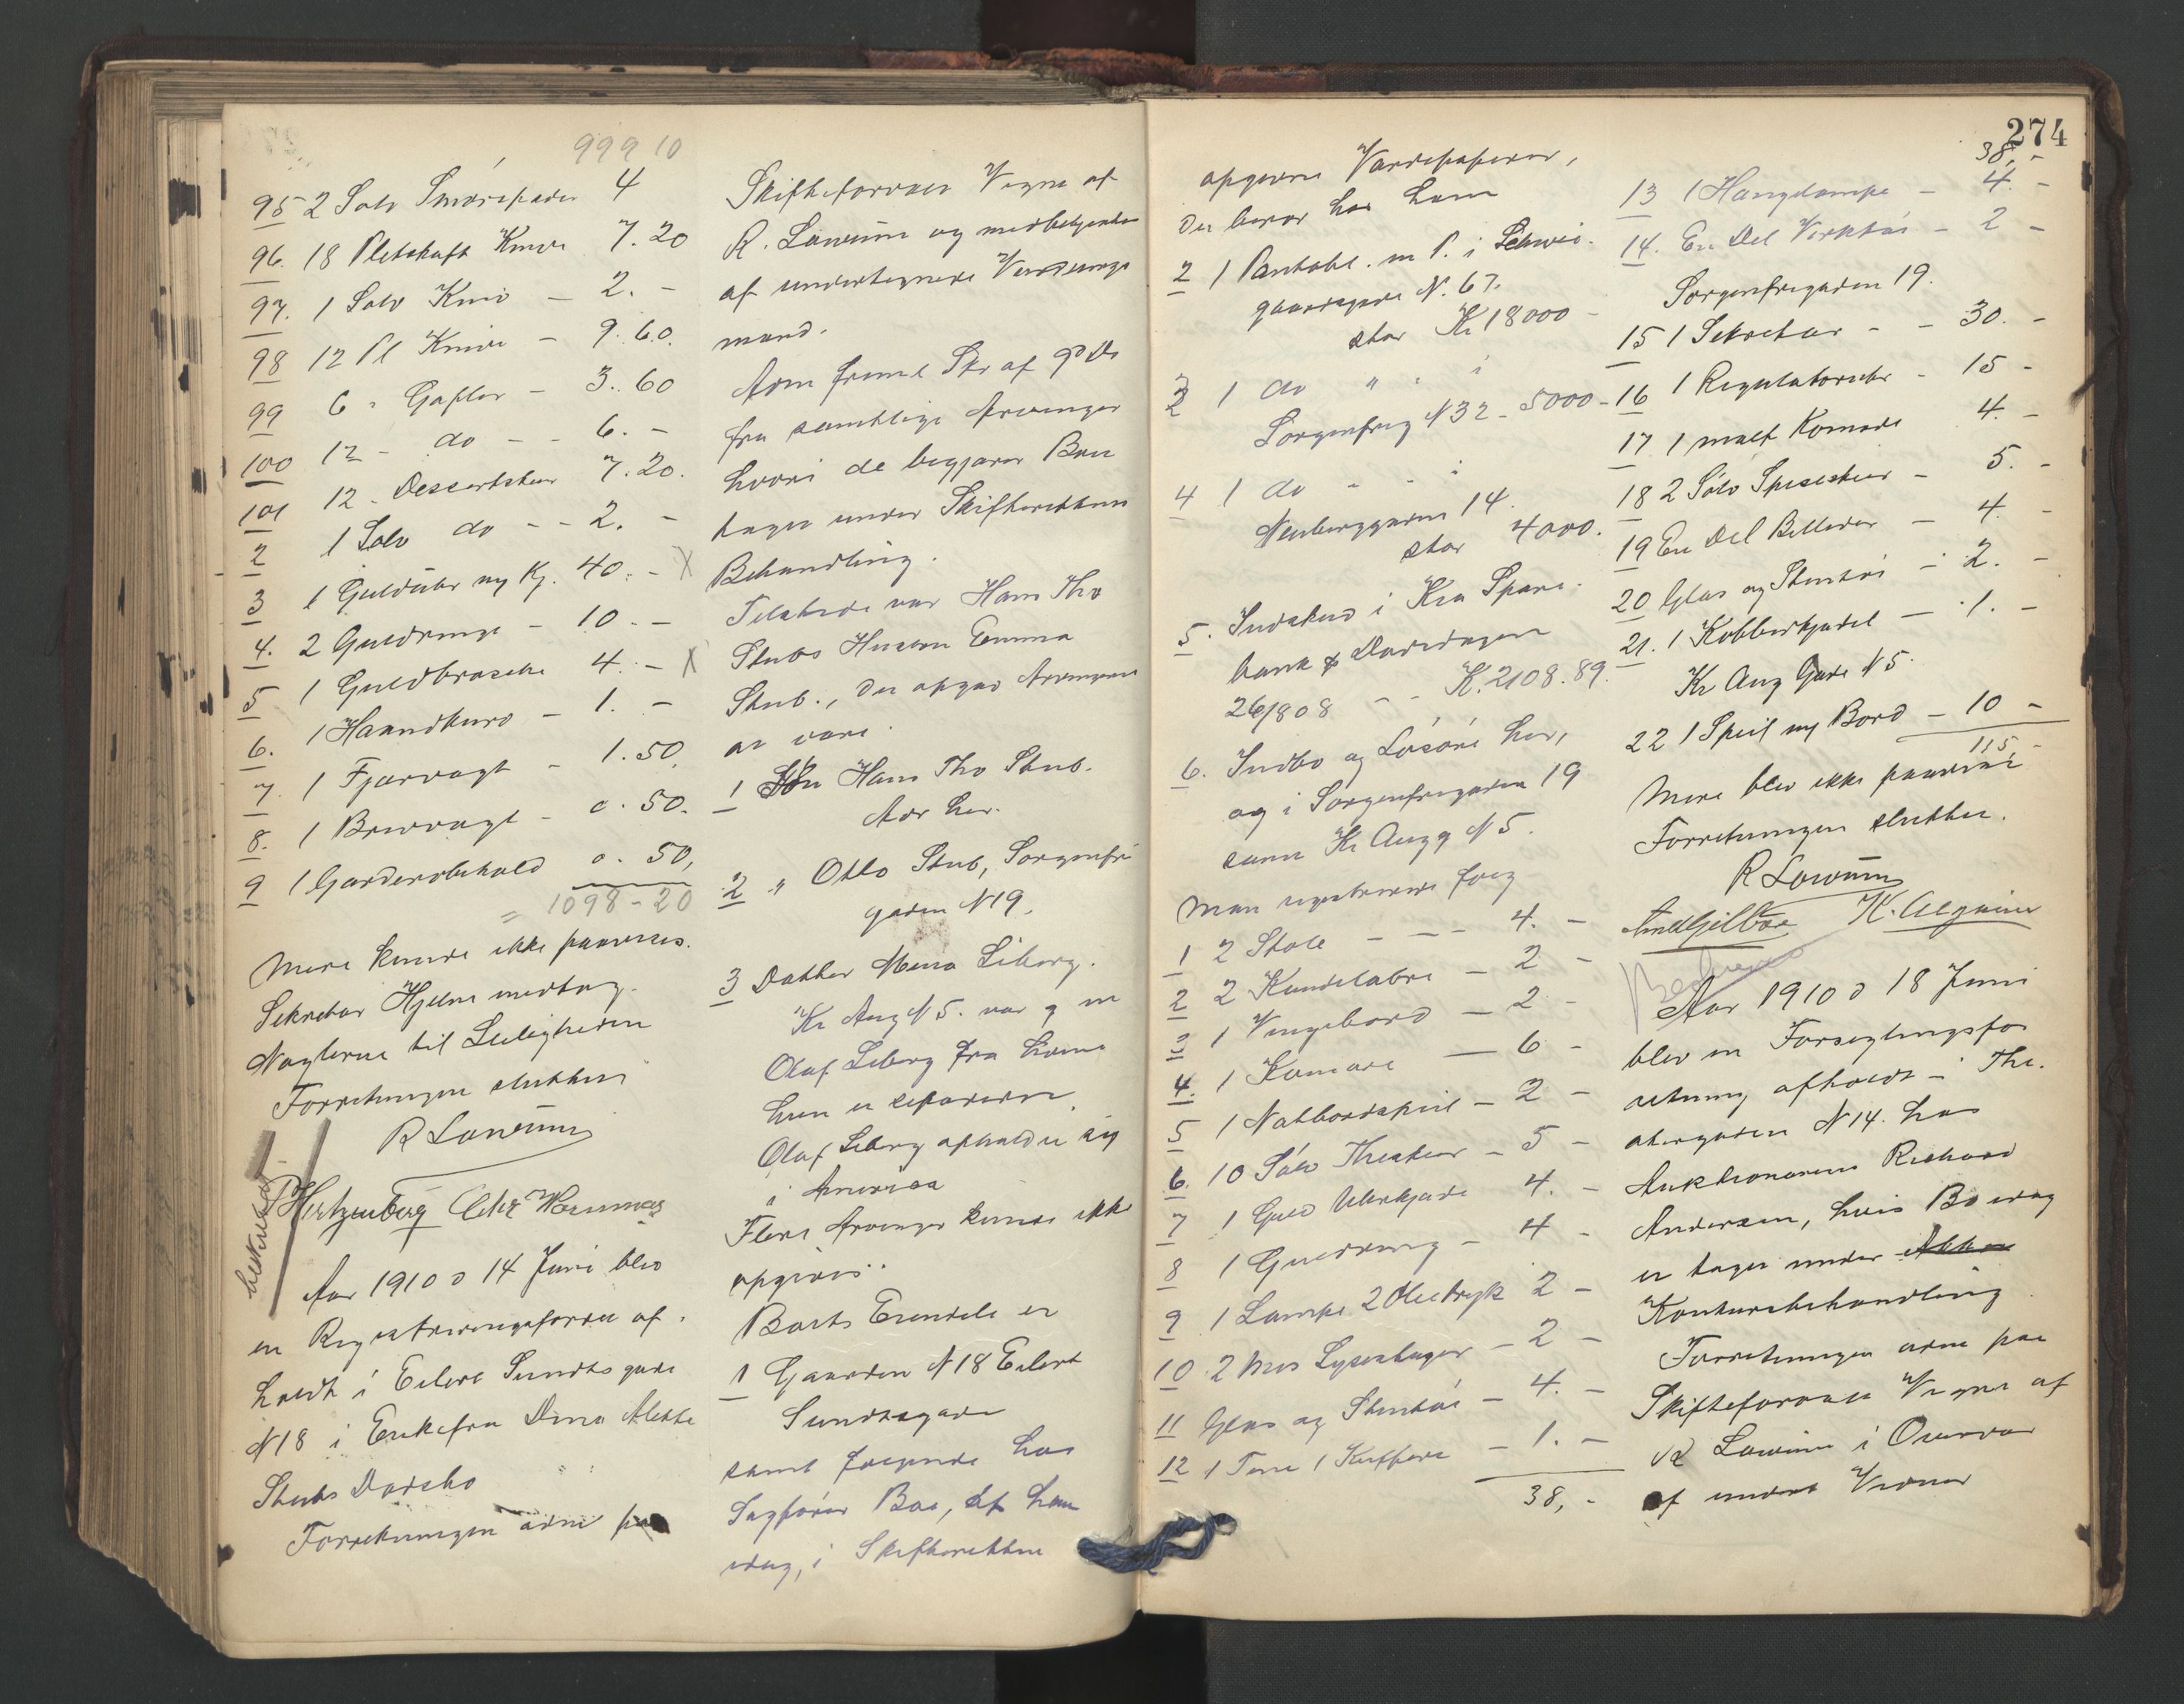 999 10
95 2 Sølv Smørspader 4
96. 18 Pletskaft Knive 7.20
97. 1 Sølv Kniv — 2. -
98 12 Pl Knive — 9.60.
99 6 " Gafler — 3.60
100 12 - do — - 6. -
101 12 - Dessertskeer 7.20.
2 1 Sølv do - - 2. -
3 1 Guldūhr og Kj. 40. - X
4. 2 Guldringe — 10. -
5 1 Guldbrosche 4. - X
6. 1 Haandkurv — 1. -
7. 1 Fjærvægt — 1.50.
8. 1 Brevvægt — 0.50.
9 1 Garderobehold 0.50,
= 1098-20
Mere kunde ikke paavises.
Sekretær Hjelm medtog
Nøglerne til Leiligheden
Forretningen sluttet
R Lowūm
P Hertzenberg Chr
beskrevet
Aar 1910 d 14 Juni blev
en Registreringsforr af-
holdt i Eilert Sundts gade
N18 i Enkefru Dina Alette
Stubs Dødsbo
Forretningen adm paa
Skifteforvalt Vegne af
R. Lowūm og medbetjentes
af undertegnede Vurderings
mænd.
Adm freml Skr af 9 ds
fra samtlige Arvinger
hvori de begjærer Boet
taget under Skifterettens
Behandling.
Tilstede var Hans Tho
Stubs Hustru Emma
Stub., der opgav Arvingerne
at være.
1 Søn Hans Tho Stub.
Adr her.
2 " Otto Stub, Sorgenfri
gaden N19.
3 Datter Mina Liborg.
Kr Aug N5. var g m
Olaf Liborg fra hvem
hun er separeret.
Olaf Liborg opholder sig
i Amerika
Flere Arvinger kunde ikke
opgives.
Boets Eiendele er
1 Gaarden N18 Eilert
Sundtsgade
samt følgende hos
Sagfører Boe, af ham
idag, i Skifteretten
274
opgivne Værdipapirer,
der beror hos ham
2 1 Pantobl. m P. i Schwei-
gaardsgade N. 67.
stor Kr 18000 -
3 1 do " " "
Sorgenfrig N32 - 5000 -
4 1 do - -
Neuberggaden 14.
stor 4000.
5. Indskud i Kra Spare-
bank & Dødsdagen
26/1808 - - K. 2108.89.
6. Indbo og Løsøre her,
og i Sorgenfrigaden 19
samt Kr Augg N5.
Man registrerede følg
1 2 Stole - — - 4. -
2 2 Kandelabre — 2 -
3 1 Vingebord — 2 -
4. 1 Komode — 6 -
5 1 Natbordspeil — 2 -
6. 10 Sølv Theskeer — 5 -
7 1 Guld Uhrkjæde 4. -
8 1 Guldring — 4 -
9 1 Lampe 2 Olietryk 2 -
10 2 Mes Lysestager — 2 -
11 Glas og Stentøi — 4. -
12 1 Tine 1 Kuffert — 1. -
38, -
38, -
13 1 Hængelampe — 4. -
14. En Del Verktøi — 2 -
Sorgenfrigaden 19.
15 1 Sekretær - - 30. -
16 1 Regulatoruhr - 15 -
17 1 malt Komode 4. -
18 2 Sølv Spiseskeer — 5. -
19 En Del Billeder — 4 -
20 Glas og Stentøi — 2. -
21. 1 Kobberkjedel — 1. -
Kr Aug Gade N5.
22 1 Speil og Bord — 10 -
115, -
Mere blev ikke paavist
Forretningen sluttet.
R Lowūm
Beskrevet
Aar 1910 d 18 Juni
blev en Forseglingsfor
retning afholdt i The-
atergaden N14. hos
Auktionarius Richard
Andersen, hvis Bo idag
er taget under
Konkursbehandling
Forretningen adm paa
Skifteforvalt Vegne af
R Lowūm i Overvær
af undert Vidner